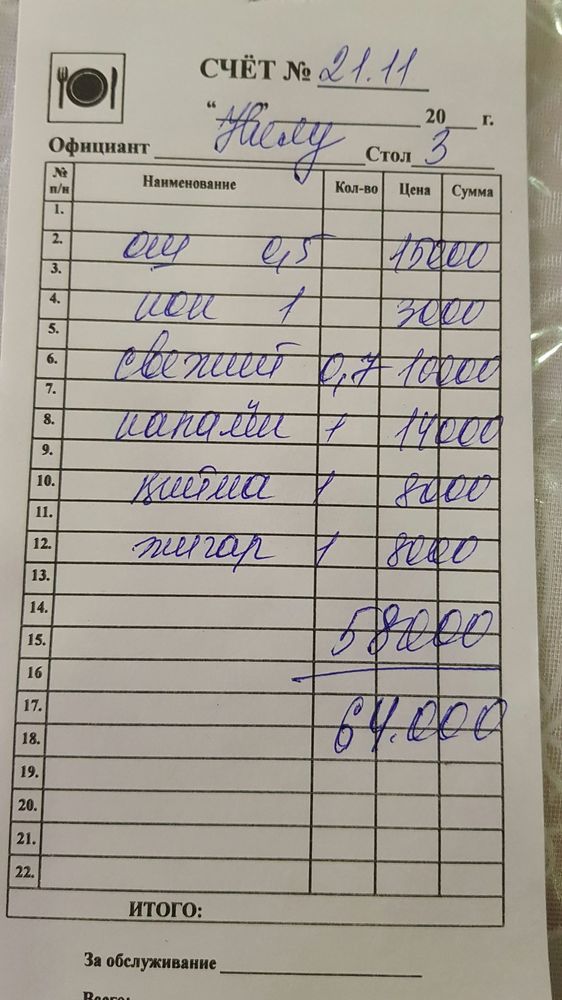 СЧЁТ № 21.11
“ ” 20 г.
Официант Стол 3
№ п/н Наименование Кол-во Цена Сумма
1.
2. ош 0,5 15000
3.
4. нон 1 3000
5.
6. свежий 0,7 10000
7.
8. 1 14000
9.
10. қийма 1 8000
11.
12. жигар 1 8000
13.
14.
15. 58000
16
17. 64.000
18.
19.
20.
21.
22.
ИТОГО:
За обслуживание
Всего: